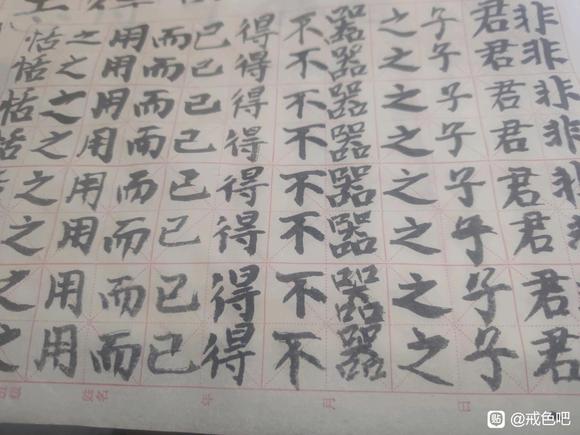 非非非非非非非
君君君君君君君君
子子子子子子子子
之之之之之之之之
器器器器器器器器
不不不不不不不不
得得得得得得得得
已已已已已已已已
而而而而而而而而
用用用用用用用用
之之之之之之之之
恬恬恬恬
姓名
年
月
日
贴 @戒色吧